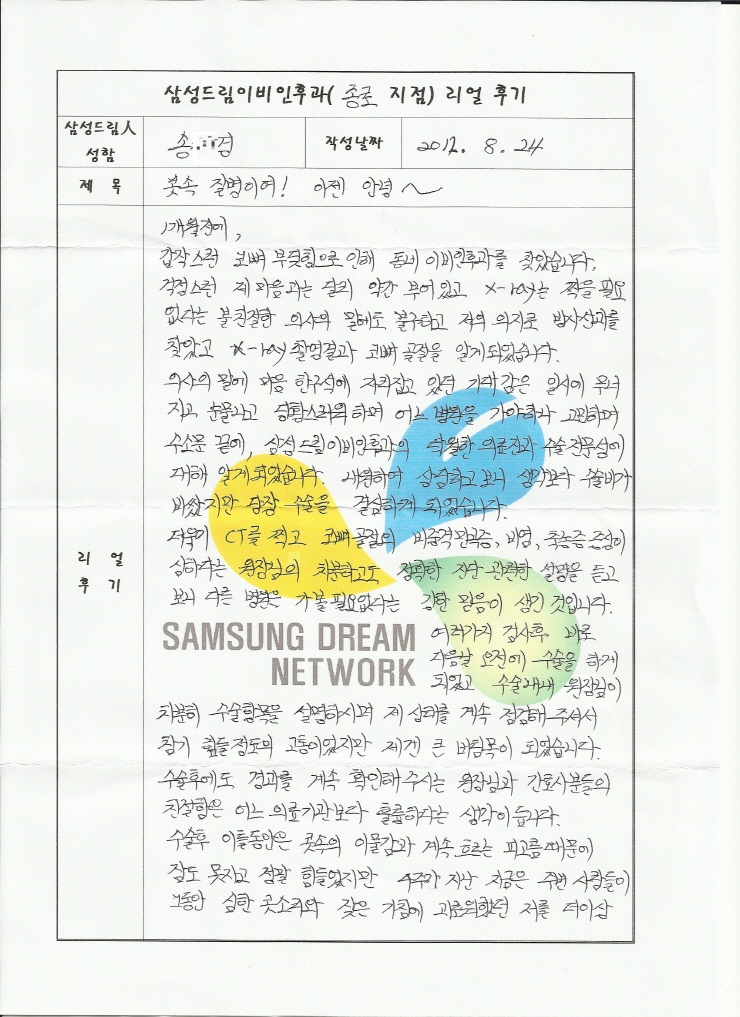 삼성드림이비인후과( 종로 지점) 리얼 후기
삼성드림人
성함
송 경
작성날짜
2012. 8. 24
제 목
콧속 질병이여! 이젠 안녕~
1개월전에,
갑작스런 코뼈 부딪힘으로 인해 동네 이비인후과를 찾았습니다.
걱정스런 제 마음과는 달리 약간 부어있고 x-ray는 찍을 필요
없다는 불친절한 의사의 말에도 불구하고 저의 의지로 방사선과를
찾았고 x-ray 촬영결과 코뼈 골절을 알게되었습니다.
의사의 말에 마음 한구석에 자리잡고 있던 기대감은 일시에 무너
지고 눈물나고 당황스러워 하며 어느 병원을 가야하나 고민하며
수소문 끝에, 삼성드림이비인후과의 탁월한 의료진과 수술전문성에
대해 알게 되었습니다. 내원하여 상담하고보니 생각보다 수술비가
비쌌지만 당장 수술을 결심하게 되었습니다.
더욱이 CT를 찍고 코뼈골절외 비중격만곡증, 비염, 축농증 증상이
심하다는 원장님의 차분하고도 정확한 진단 관련한 설명을 듣고
보니 다른 병원은 가볼 필요없다는 강한 믿음이 생긴 것입니다.
여러가지 검사후 바로
다음날 오전에 수술을 하게
되었고 수술내내 원장님이
차분히 수술항목을 설명하시며 제 상태를 계속 점검해 주셔서
참기 힘들정도의 고통이었지만 제겐 큰 버팀목이 되었습니다.
수술후에도 경과를 계속 확인해주시는 원장님과 간호사분들의
친절함은 어느 의료기관보다 훌륭하다는 생각이 듭니다.
수술후 이틀동안은 콧속의 이물감과 계속 흐르는 피고름때문에
잠도 못자고 정말 힘들었지만 4주가 지난 지금은 주변 사람들이
그동안 심한 콧소리와 잦은 기침에 괴로워했던 저를 더이상
리 얼
후 기
SAMSUNG DREAM
NETWORK